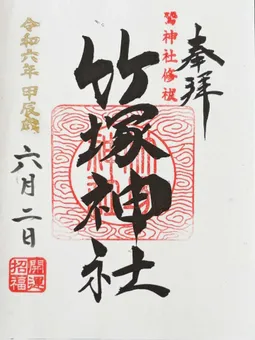 奉拝
鷲神社修祓
竹塚神社
令和六年 甲辰歳
六月二日
開運
招福